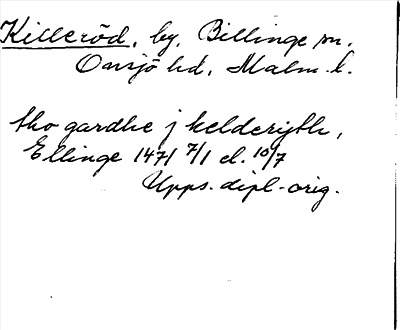 Killeröd, by, Billinge sn.
Onsjö hd, Malm. l.
tho gardhe j kelderijth,
Ellinge 1471 7/1 el. 10/7
Upps. dipl-orig.